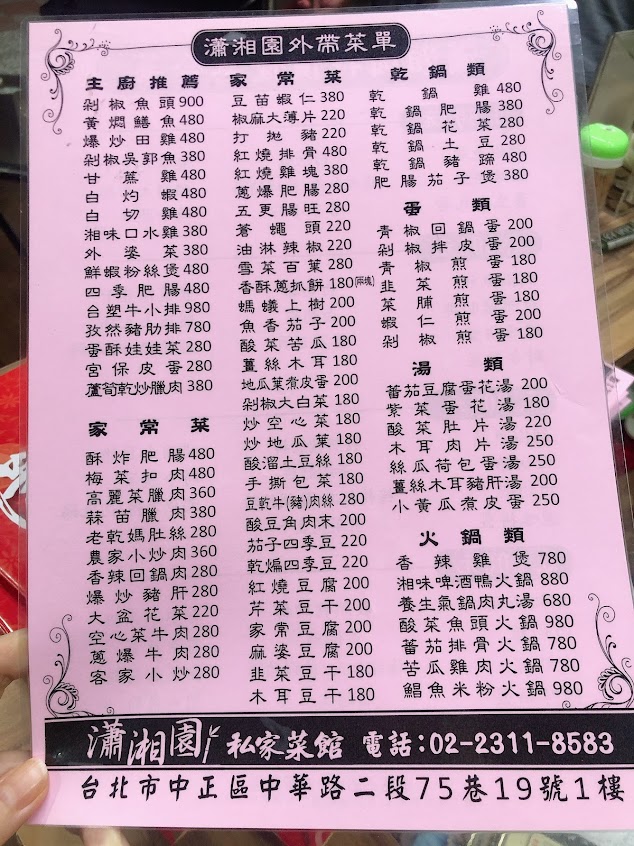 瀟湘園外帶菜單
主廚推薦
剁椒魚頭900
黃燜鱔魚480
爆炒田雞480
剁椒吳郭魚380
甘蔗雞480
白灼蝦480
白切雞480
湘味口水雞380
外婆菜380
鮮蝦粉絲煲480
四季肥腸480
台塑牛小排980
孜然豬肋排780
蛋酥娃娃菜280
宮保皮蛋280
蘆筍乾炒臘肉380
家常菜
酥炸肥腸480
梅菜扣肉480
高麗菜臘肉360
蒜苗臘肉380
老乾媽肚絲280
農家小炒肉360
香辣回鍋肉280
爆炒豬肝280
大盆花菜220
空心菜牛肉280
蔥爆牛肉280
客家小炒280
家常菜
豆苗蝦仁380
椒麻大薄片220
打拋豬220
紅燒排骨480
紅燒雞塊380
蔥爆肥腸280
五更腸旺280
蒼蠅頭220
油淋辣椒220
雪菜百葉280
香酥蔥抓餅180(兩塊)
螞蟻上樹200
魚香茄子200
酸菜苦瓜180
薑絲木耳180
地瓜葉煮皮蛋200
剁椒大白菜180
炒空心菜180
炒地瓜葉180
酸溜土豆絲180
手撕包菜180
豆乾牛(豬)肉絲280
酸豆角肉末200
茄子四季豆220
乾煸四季豆220
紅燒豆腐200
芹菜豆干200
家常豆腐200
麻婆豆腐200
韭菜豆干180
木耳豆干180
乾鍋類
乾鍋雞480
乾鍋肥腸380
乾鍋花菜280
乾鍋土豆280
乾鍋豬蹄480
肥腸茄子煲380
蛋類
青椒回鍋蛋200
剁椒拌皮蛋200
青椒煎蛋180
韭菜煎蛋180
菜脯煎蛋180
蝦仁煎蛋200
剁椒煎蛋180
湯類
蕃茄豆腐蛋花湯200
紫菜蛋花湯180
酸菜肚片湯220
木耳肉片湯250
絲瓜荷包蛋湯250
薑絲木耳豬肝湯200
小黃瓜煮皮蛋250
火鍋類
香辣雞煲780
湘味啤酒鴨火鍋880
養生氣鍋肉丸湯680
酸菜魚頭火鍋980
蕃茄排骨火鍋780
苦瓜雞肉火鍋780
鯧魚米粉火鍋980
瀟湘園 私家菜館 電話:02-2311-8583
台北市中正區中華路二段75巷19號1樓